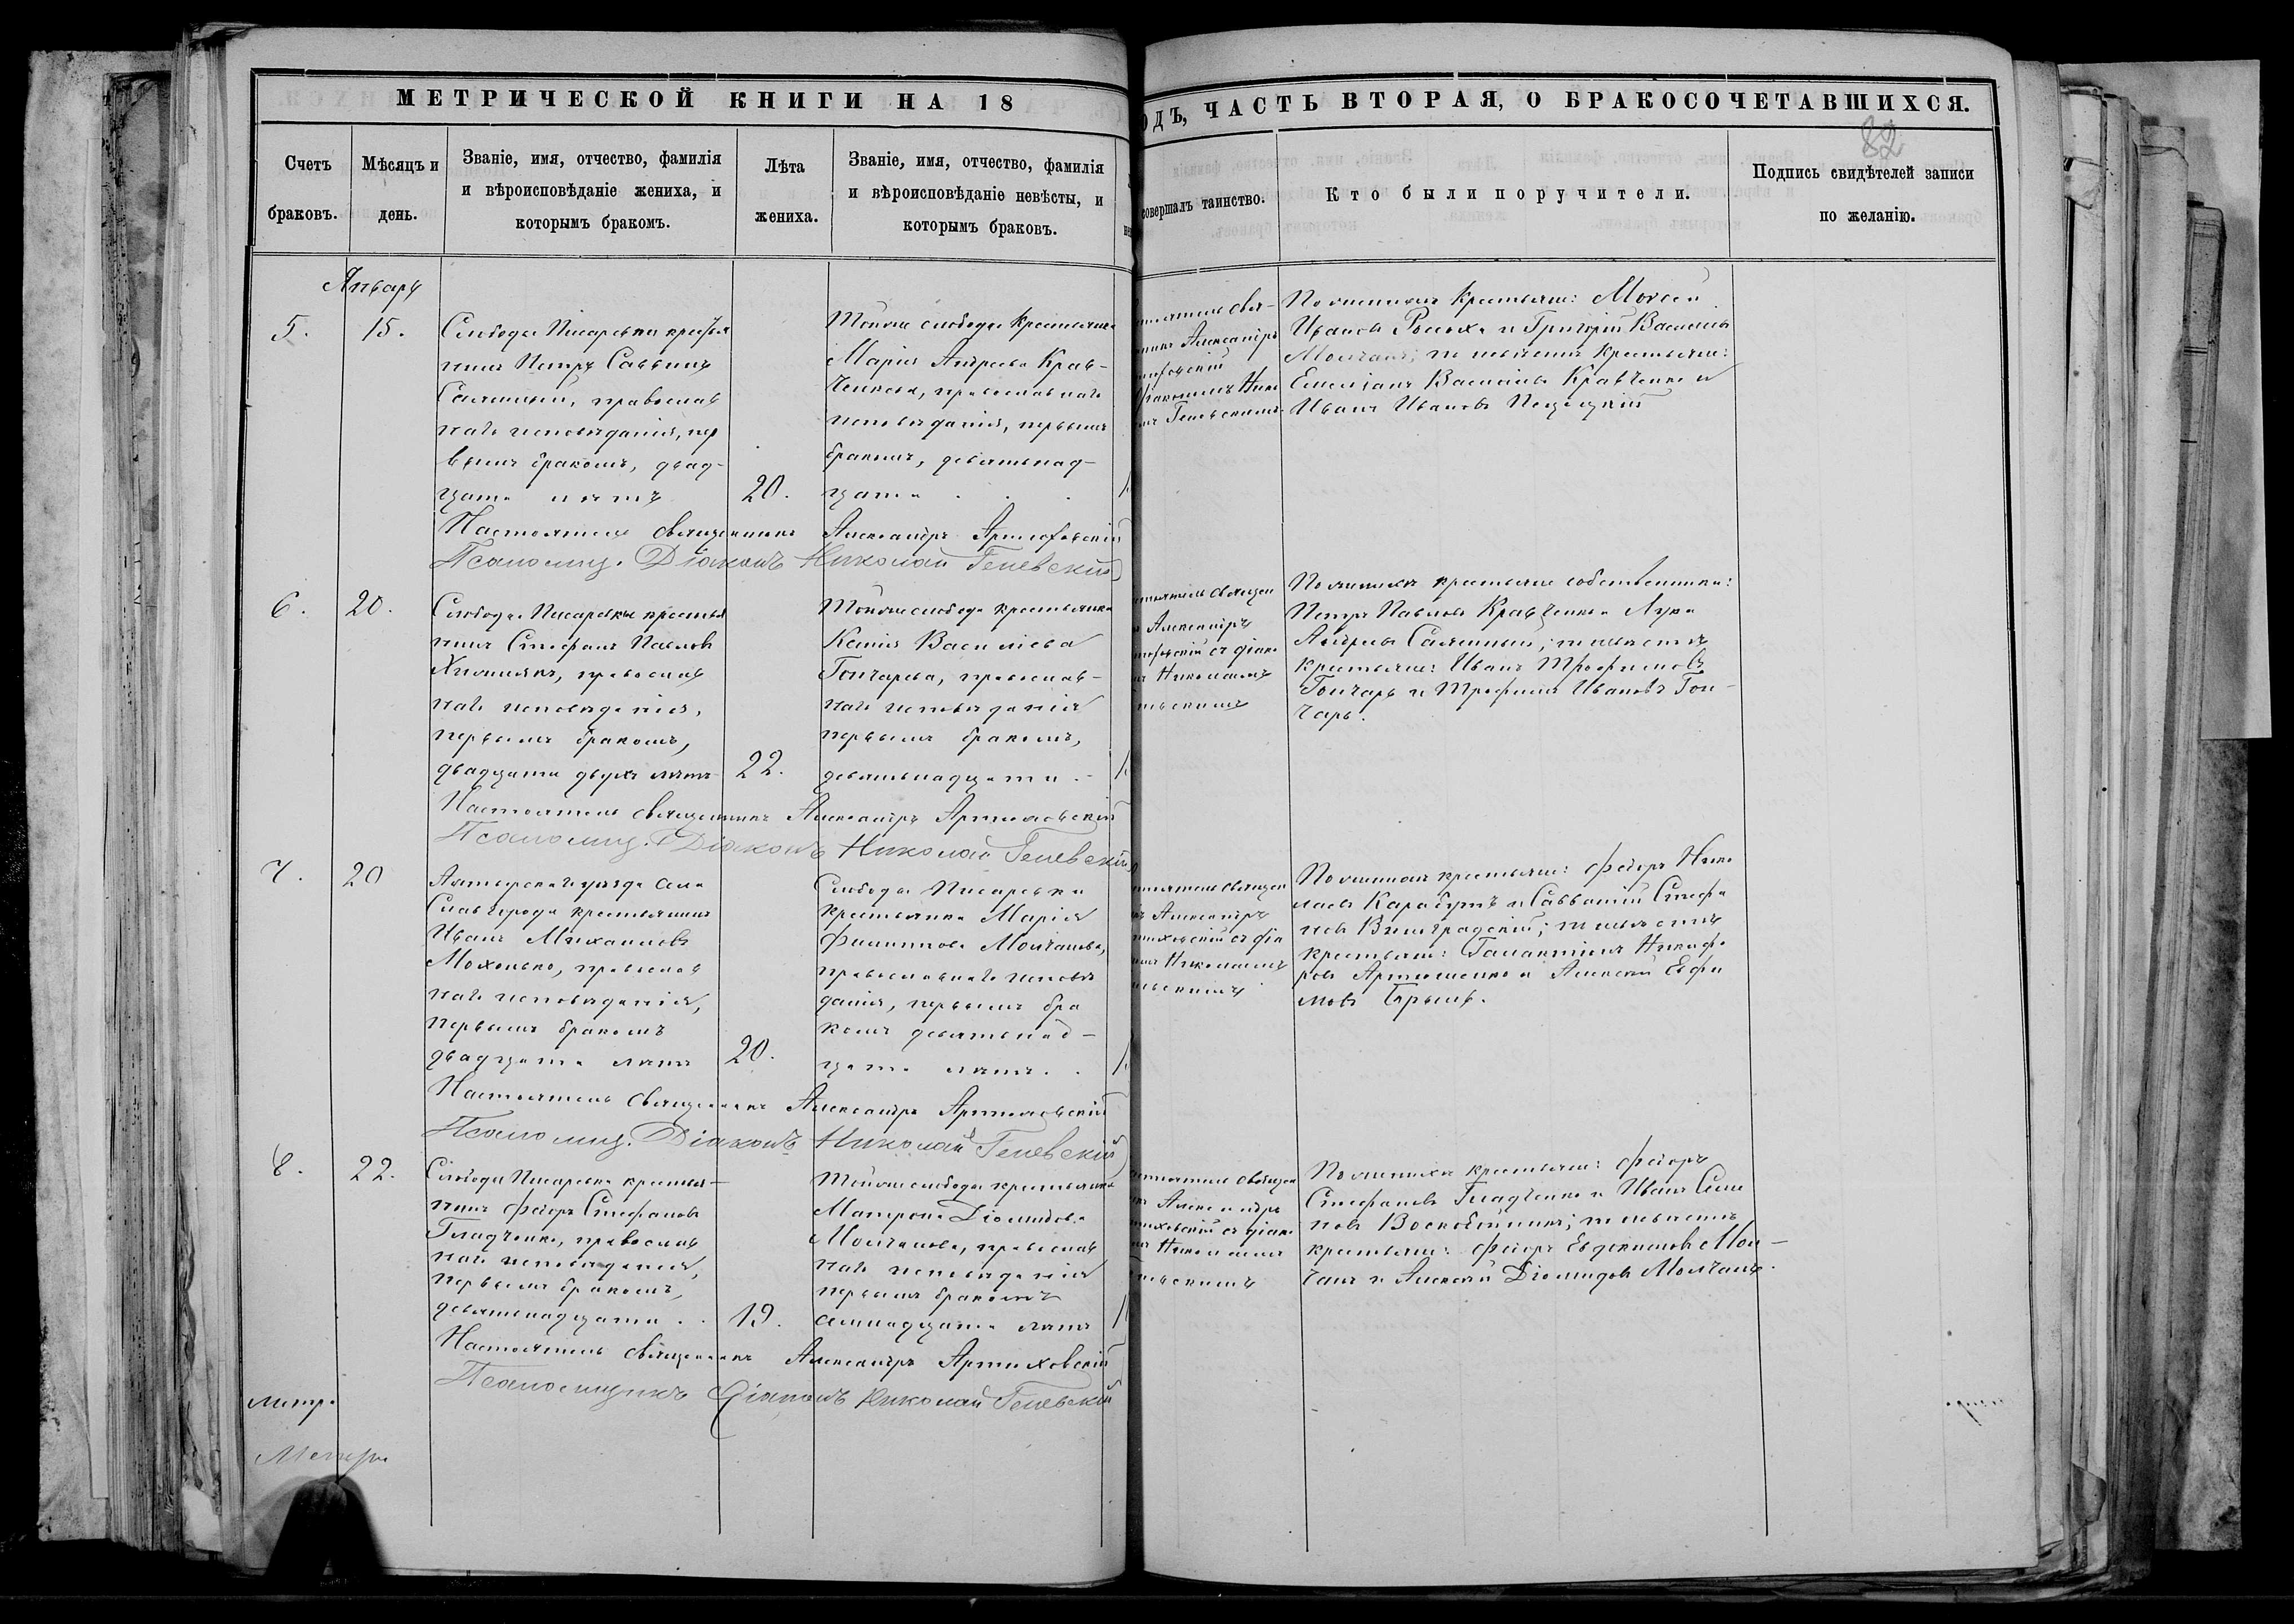 МЕТРИЧЕСКОЙ КНИГИ НА 18
ОДЪ, ЧАСТЬ ВТОРАЯ, О БРАКОСОЧЕТАВШИХСЯ.
82
Счетъ браковъ.
Мѣсяцъ и день.
Званіе, имя, отчество, фамилія
и вѣроисповѣданіе жениха, и
которымъ бракомъ.
Лѣта
жениха.
Званіе, имя, отчество, фамилія
и вѣроисповѣданіе невѣсты, и
которымъ браковъ.
совершалъ таинство.
Кто были поручители.
Подпись свидѣтелей записи
по желанію.
Январь
5.
15.
Слободы Писаревки крестья
нинъ Петръ Саввинъ
православ
наго исповѣданія, пер
вымъ бракомъ, двад-
цати лѣтъ
20.
Тойже слободы крестьянка
Марія Андреева Крав-
ченкова, православнаго
исповѣданія, первымъ
бракомъ, девятнад-
цати
Александръ
По женихѣ крестьяне: Моѵсей
Ивановъ и Григорій Васильевъ
Молчанъ; по невѣстѣ крестьяне:
Емеліанъ Васильевъ Кравченко и
Иванъ Ивановъ
Настоятель Священникъ Александръ Артюховскій
Псаломщ. Діаконъ Николай Геневскій
6.
20.
Слободы Писаревки крестья
нинъ Стефанъ Павловъ
православ
наго исповѣданія,
первымъ бракомъ,
двадцати двухъ лѣтъ
22.
Тойже слободы крестьянка
Ксенія Василіева
Гончарева, православ-
наго исповѣданія
первымъ бракомъ,
девятнадцати
Александръ
Николаемъ
По женихѣ крестьяне собственники:
Петръ Павловъ Кравченко Лука
Андреевъ по невѣстѣ
крестьяне: Иванъ Трофимовъ
Гончаръ и Трофимъ Ивановъ Гон-
чаръ.
Настоятель Священникъ Александръ Артюховскій
Псаломщ. Діаконъ Николай Геневскій
7.
20
Ахтырскаго уѣзда села
Славгорода крестьянинъ
Иванъ Михаиловъ
Мохонько, православ
наго исповѣданія,
первымъ бракомъ
двадцати лѣтъ
20.
Слободы Писаревки
крестьянка Марія
Филиппова Молчанова,
православнаго исповѣ
данія, первымъ бра
комъ девятнад-
цати лѣтъ.
Александръ
Николаемъ
По женихѣ крестьяне: Фёдоръ Нико
лаевъ Карабутъ и Савватій Стефа
новъ Виноградскій; по невѣстѣ
крестьяне: Галактіонъ Никифо
ровъ Артюшенко и Алексѣй Евфи
мовъ
Настоятель Священникъ Александръ Артюховскій
Псаломщ. Діаконъ Николай Геневскій
8.
22.
Слободы Писаревки крестья-
нинъ Фёдоръ Стефановъ
Гладченко, православ
наго исповѣданія,
первымъ бракомъ,
девятнадцати
19.
Тойже слободы крестьянка
Матрона Діомидова
Молчанова, православ
наго исповѣданія
первымъ бракомъ
семнадцати лѣтъ
Александръ
Николаемъ
По женихѣ крестьяне: Фёдоръ
Стефановъ Гладченко и Иванъ Семе
новъ Воскобойникъ; по невѣстѣ
крестьяне: Фёдоръ Евдокимовъ Мол-
чанъ и Алексѣй Діомидовъ Молчанъ.
Настоятель Священникъ Александръ Артюховскій
Псаломщикъ Діаконъ Николай Геневскій